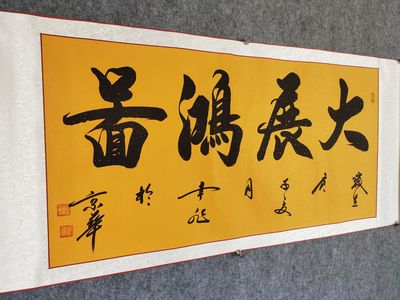 大展鴻圖
歲在
庚
子夏
月
於
京華